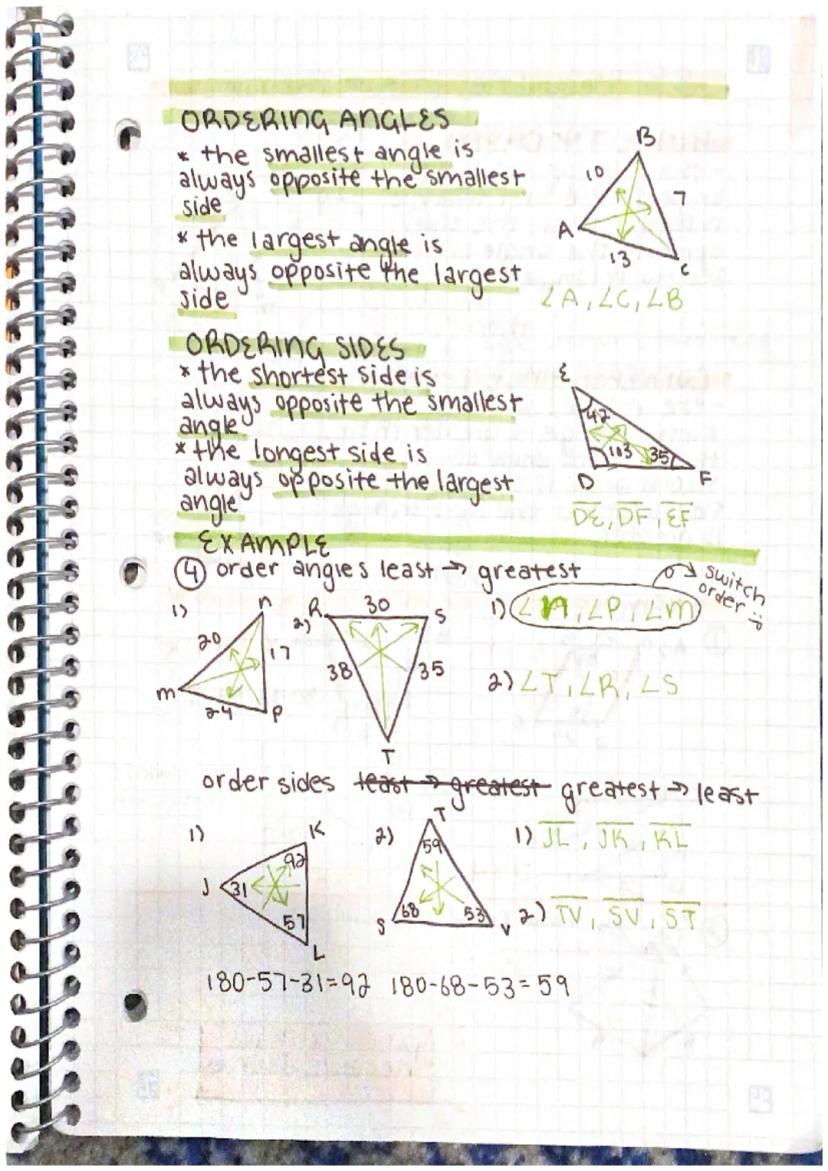 ORDERING ANGLES
* the smallest angle is
always opposite the smallest
side
* the largest angle is
always opposite the largest
side
B
10
7
A
13
C
∠A, ∠C, ∠B
ORDERING SIDES
* the shortest side is
always opposite the smallest
angle
* the longest side is
always opposite the largest
angle
E
42
103
35
D
F
DE, DF, EF
EXAMPLE
④ order angles least → greatest
switch
order
1)
n
20
17
m
24
P
2)
R
30
S
38
35
T
1) ∠n, ∠P, ∠m
2) ∠T, ∠R, ∠S
order sides least → greatest greatest → least
1)
K
92
J
31
57
L
2)
T
59
S
68
53
V
1) JL, JK, KL
2) TV, SV, ST
180-57-31=92 180-68-53=59